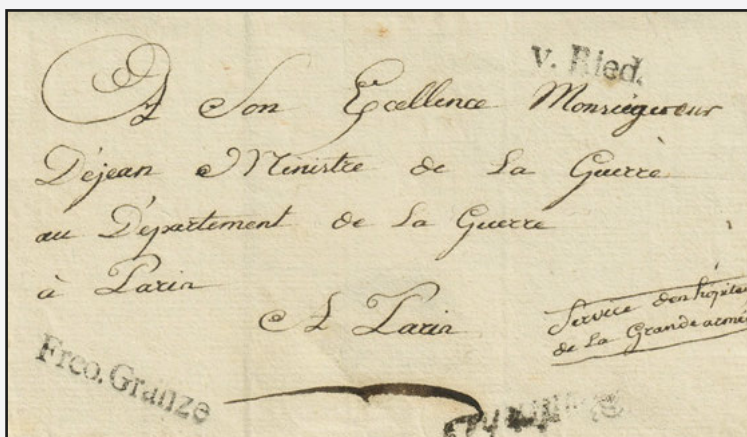 V. Ried.
A Son Excellence Monseigneur
Déjean Ministre de La Guerre
au Département de La Guerre
à Paris
A Paris
Service des hôpitaux
de La Grande armée
Frco. Granze